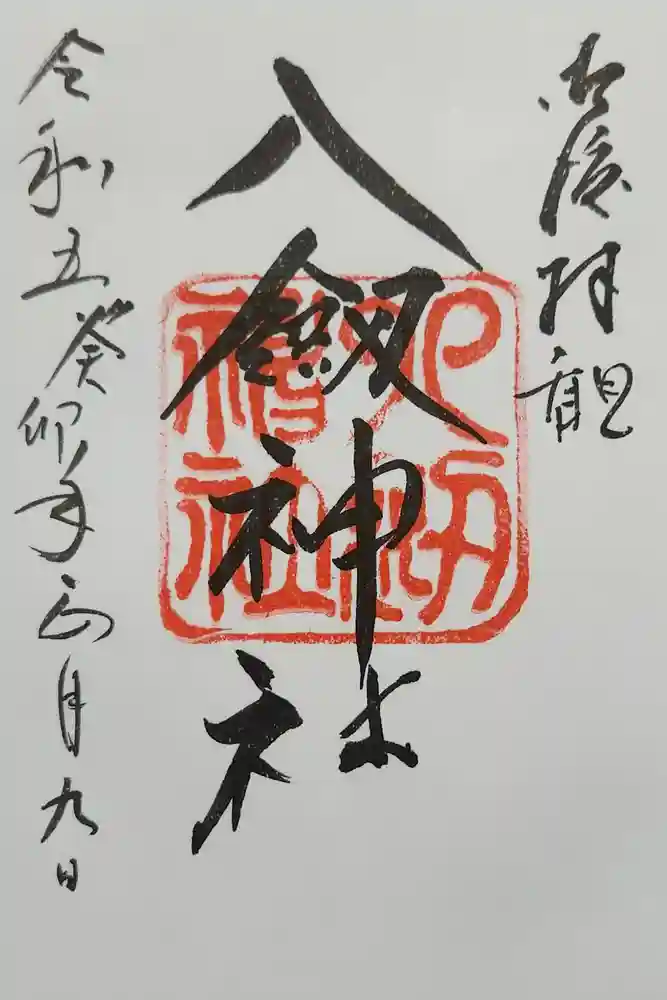 御渡拝観
八剱神社
八剱神社
令和五癸卯年正月九日